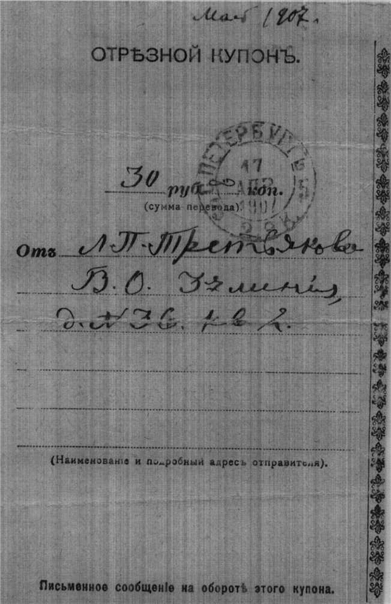 Май 1907.
ОТРѢЗНОЙ КУПОНЪ.
ПЕТЕРБУРГЪ
17
1907
30 руб. коп.
(сумма перевода).
Отъ Л. П. Третьякова
В. О. 3я линія,
д. № 36. кв 2.
(Наименованіе и подробный адресъ отправителя).
Письменное сообщеніе на оборотѣ этого купона.